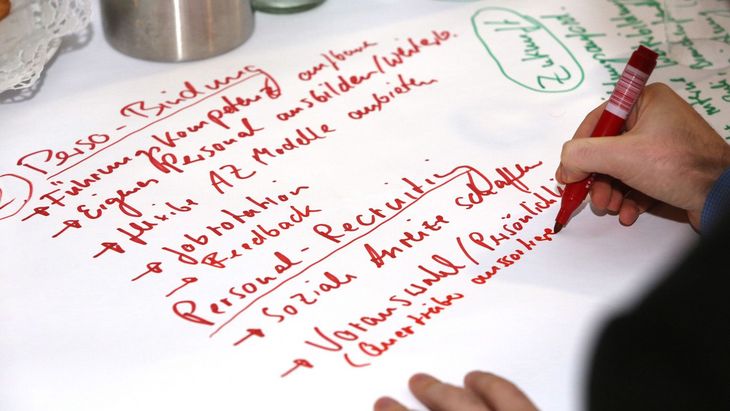 Perso-Bindung
→ Führungskompetenz aufbauen
→ Eigenes Personal ausbilden/weiterb.
→ flexible AZ Modelle anbieten
→ Jobrotation
→ Feedback
Personal-Recruiting
→ Soziale Anreize schaffen
→ Vorauswahl/Persönlichk
(Quertreiber aussortiere
Zukunft